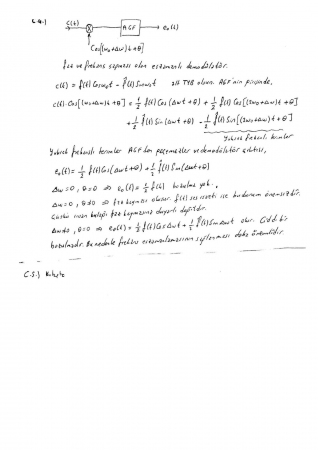 C4.)
c(t)
AGF
e₀(t)
Cos[(ω₀+Δω)t+θ]
faz ve frekans sapması olan eszamanlı demodülatör.
c(t) = f(t)Cosω₀t - f̂(t)Sinω₀t alt TYB olursa. AGF'nin girişinde,
c(t).Cos[(ω₀+Δω)t+θ] = 1/2 f(t)Cos(Δωt+θ) + 1/2 f(t)Cos[(2ω₀+Δω)t+θ]
+ 1/2 f̂(t)Sin(Δωt+θ) - 1/2 f̂(t)Sin[(2ω₀+Δω)t+θ]
Yüksek frekanslı terimler
Yüksek frekanslı terimler AGF'den geçemezler ve demodülatör çıkışı,
e₀(t) = 1/2 f(t)Cos(Δωt+θ) + 1/2 f̂(t)Sin(Δωt+θ)
Δω=0, θ=0 ⇒ e₀(t) = 1/2 f(t) bozulma yok.
Δω=0, θ≠0 ⇒ faz kayması olur. f(t) ses işareti ise bu durum önemsizdir.
Çünkü insan kulağı faz kaymasına duyarlı değildir.
Δω≠0, θ=0 ⇒ e₀(t) = 1/2 f(t)CosΔωt + 1/2 f̂(t)SinΔωt olur. Ciddi bir
bozulmadır. Bu nedenle frekans eszamanlamasının sağlanması daha önemlidir.
C.5.) Kitapta